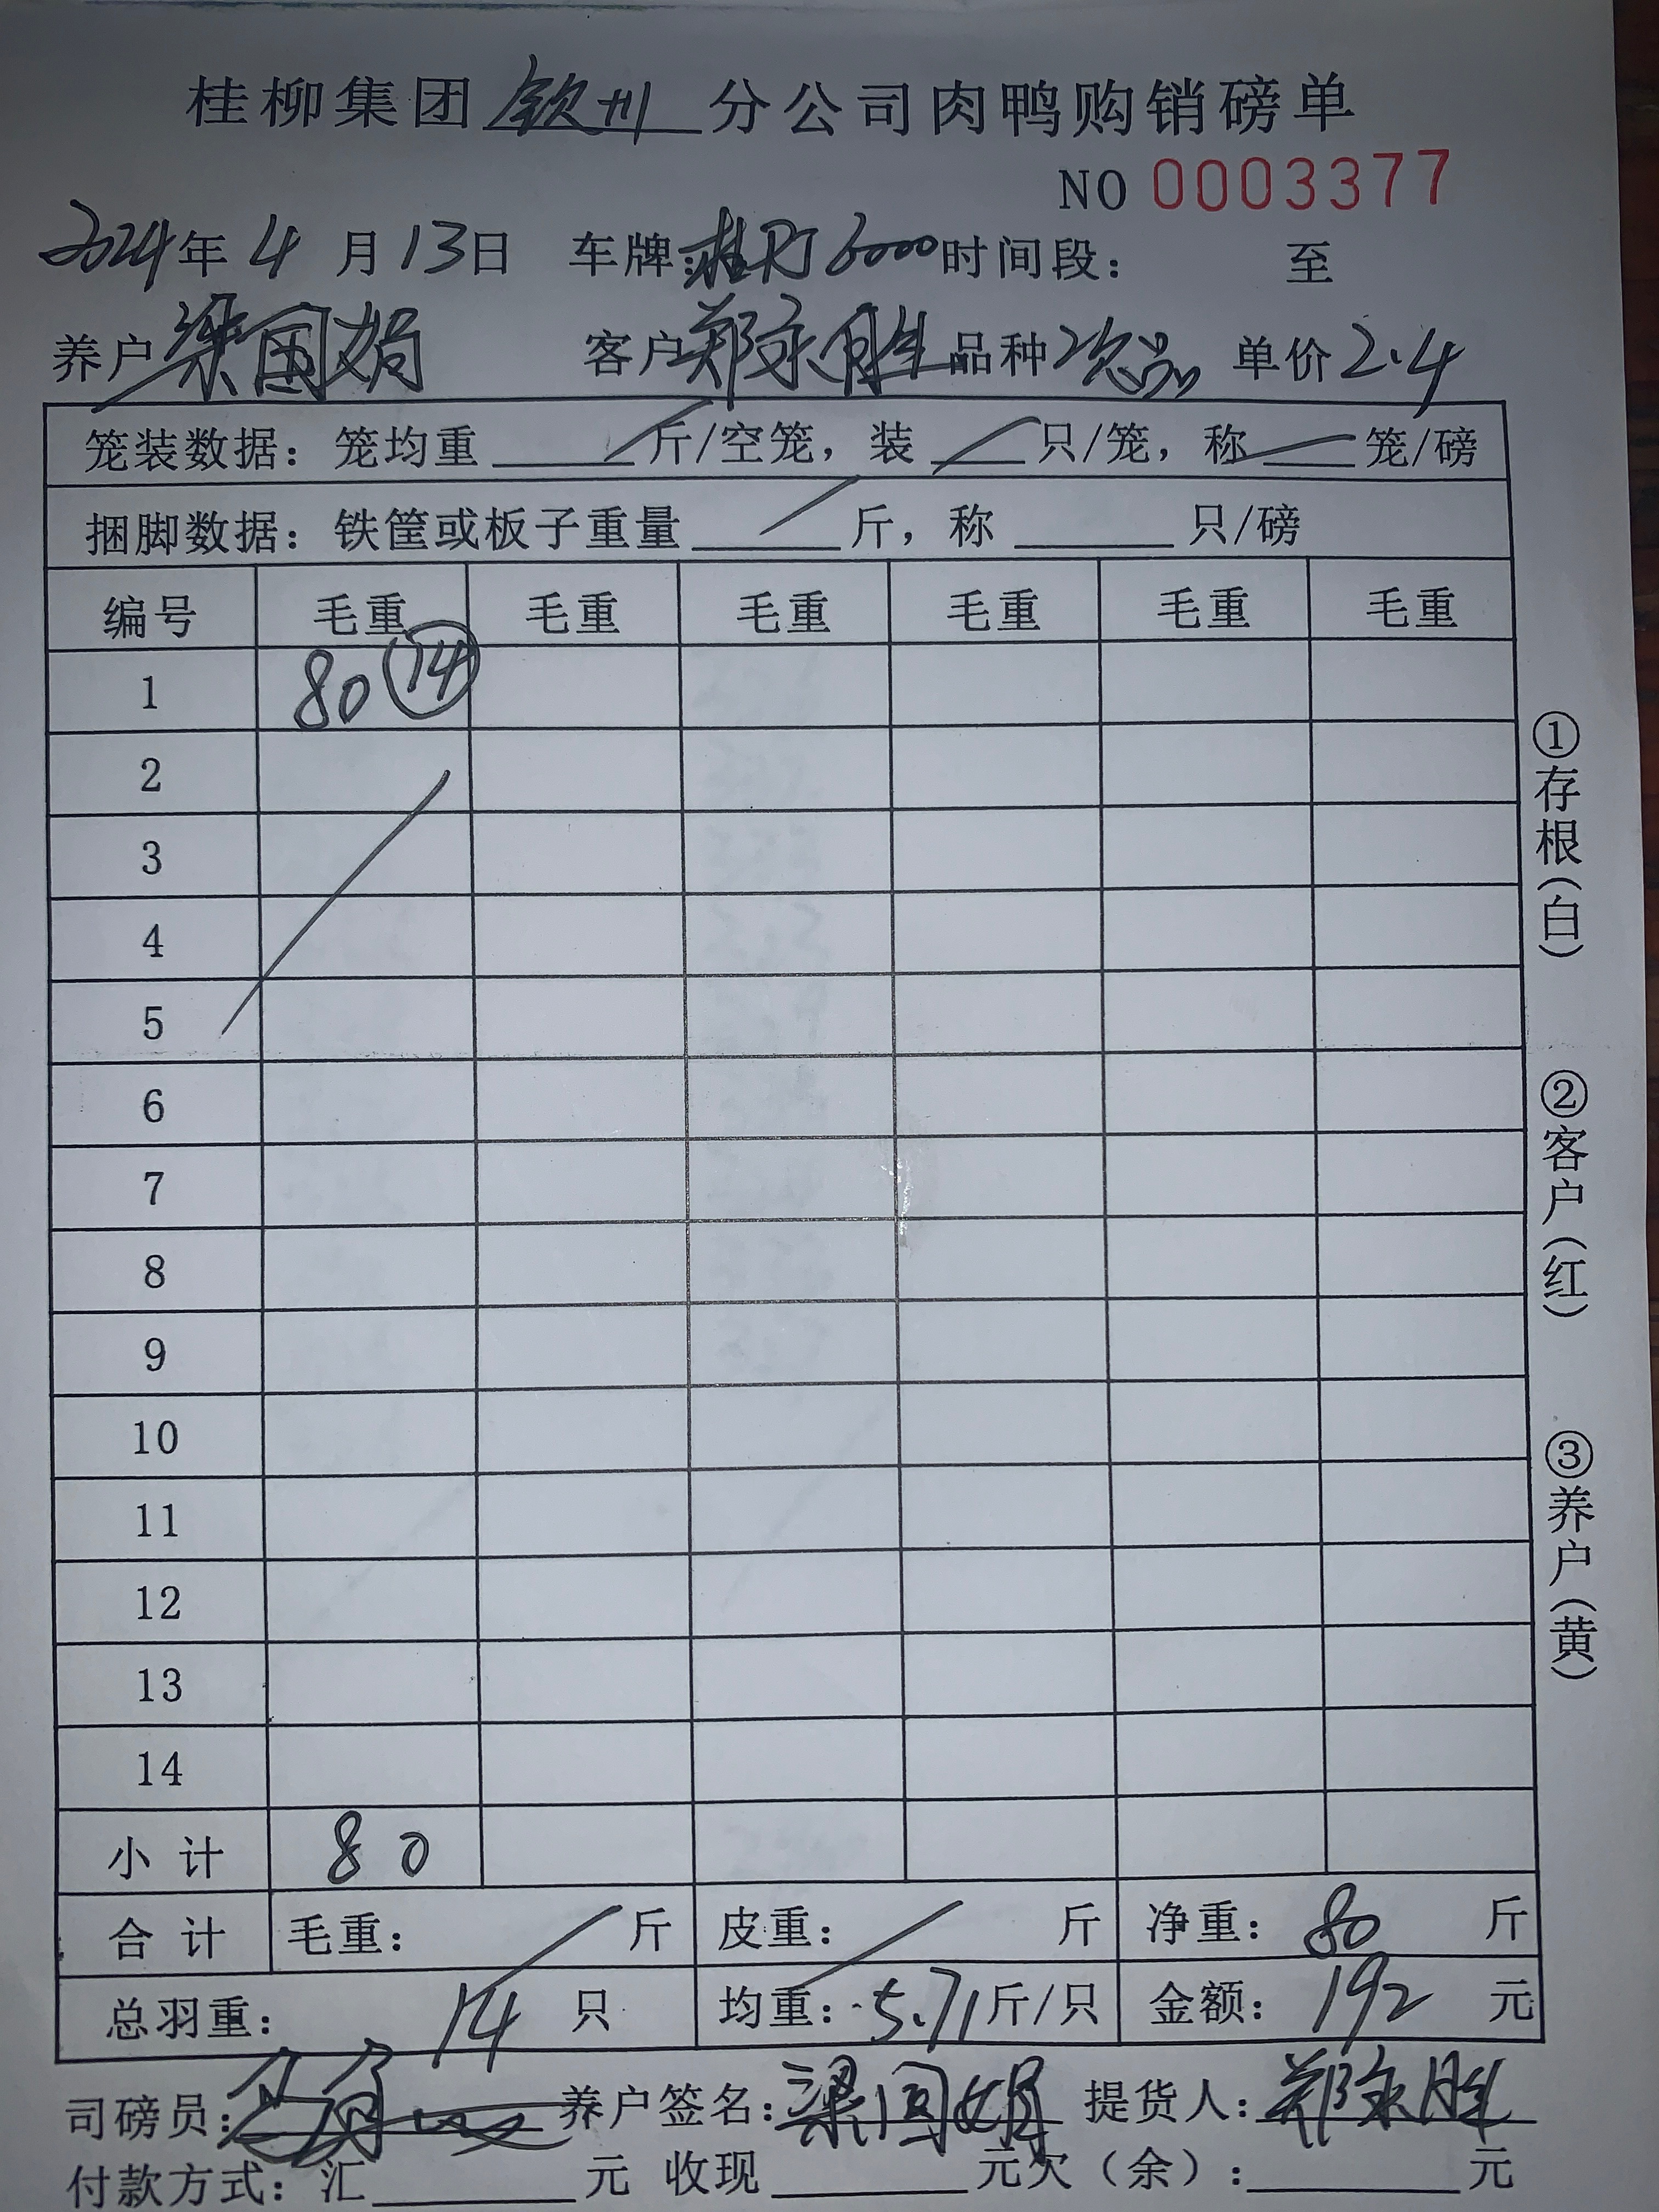 桂柳集团钦州分公司肉鸭购销磅单
NO 0003377
2024年4月13日 车牌: 6000时间段: 至
养户梁国娟 客户郑永胜品种次品 单价2.4
笼装数据: 笼均重 斤/空笼, 装 只/笼, 称 笼/磅
捆脚数据: 铁筐或板子重量 斤, 称 只/磅
编号 毛重 毛重 毛重 毛重 毛重 毛重
1 80 14
2
3
4
5
6
7
8
9
10
11
12
13
14
小计 80
合计 毛重: 斤 皮重: 斤 净重: 80 斤
总羽重: 14 只 均重: 5.71斤/只 金额: 192 元
司磅员: 养户签名: 梁国娟 提货人: 郑永胜
付款方式: 汇 元 收现 元欠(余): 元
①存根(白)
②客户(红)
③养户(黄)